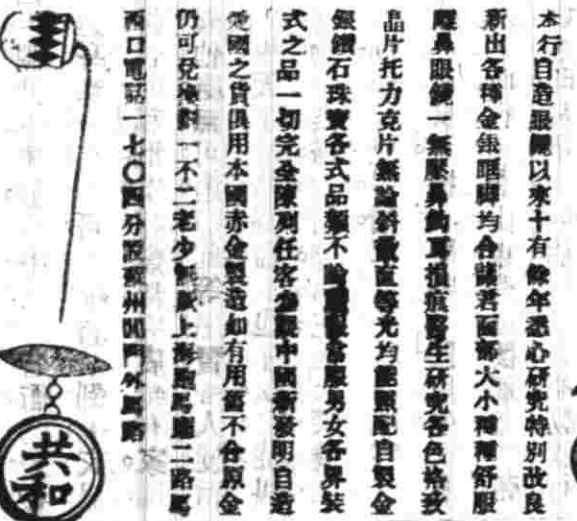 本行自造眼鏡以來十有餘年悉心研究特別改良
新出各種金銀眶脚均合諸君面部大小種種舒服
鼻眼鏡一無壓鼻鈎耳損痕醫生研究各色格致
晶片托力克片無論斜散直等光均能照配自製金
銀鑽石珠寶各式品類不論服男女各界裝
式之品一切完全陳列任客參觀中國新發明自造
愛國之貨俱用本國赤金製造如有用舊不合原金
仍可兌換劃一不二老少無欺上海跑馬廳二路馬
西口電話一七〇四分設蘇州閶門外馬路。
共和